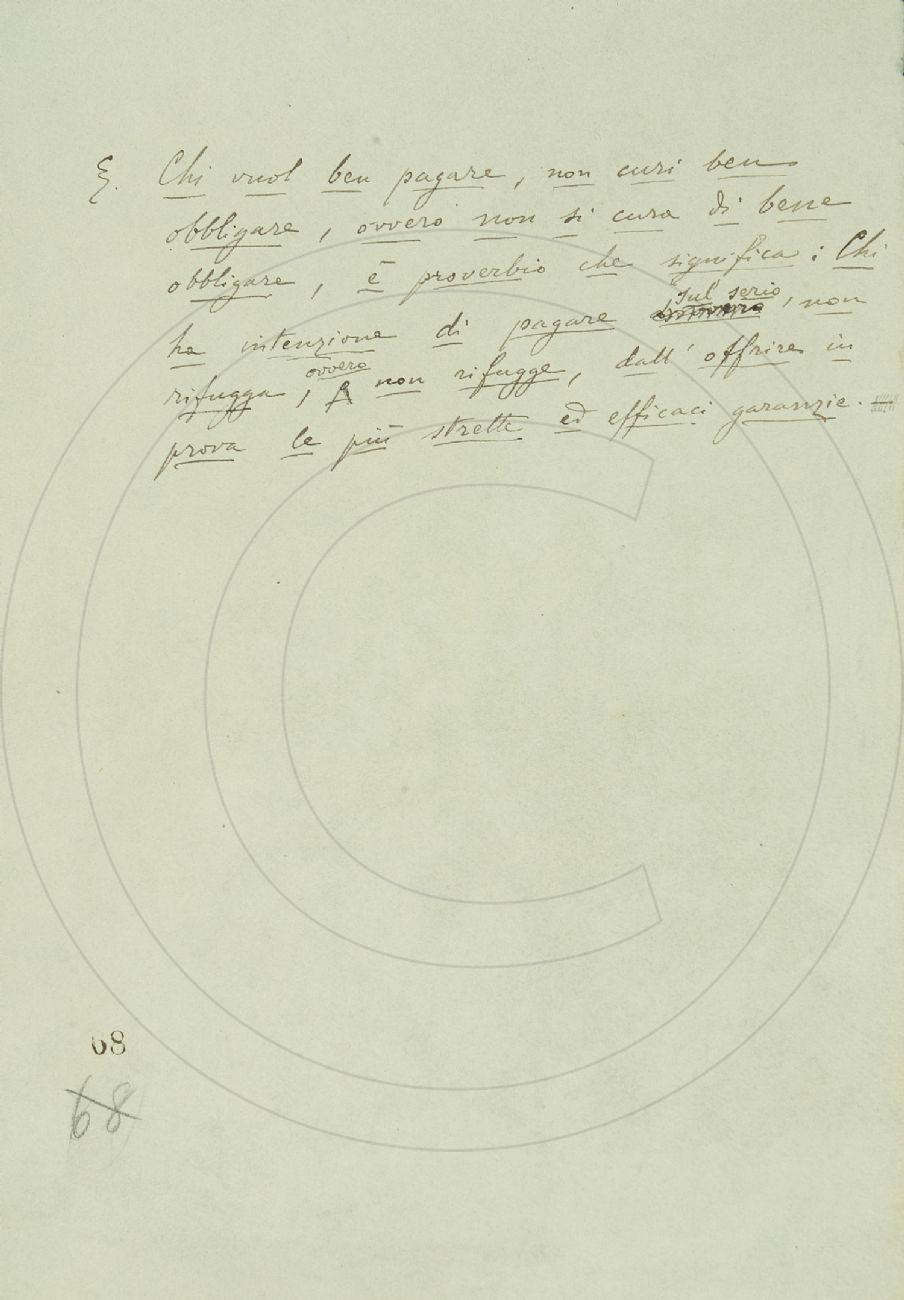 ξ. Chi vuol ben pagare, non curi bene
obbligare, ovvero non si cura di bene
obbligare, è proverbio che significa: Chi
sul serio
ha intenzione di pagare, non
ovvero
rifugga, non rifugge, dall' offrire in
prova le più strette ed efficaci garanzie.
68
68